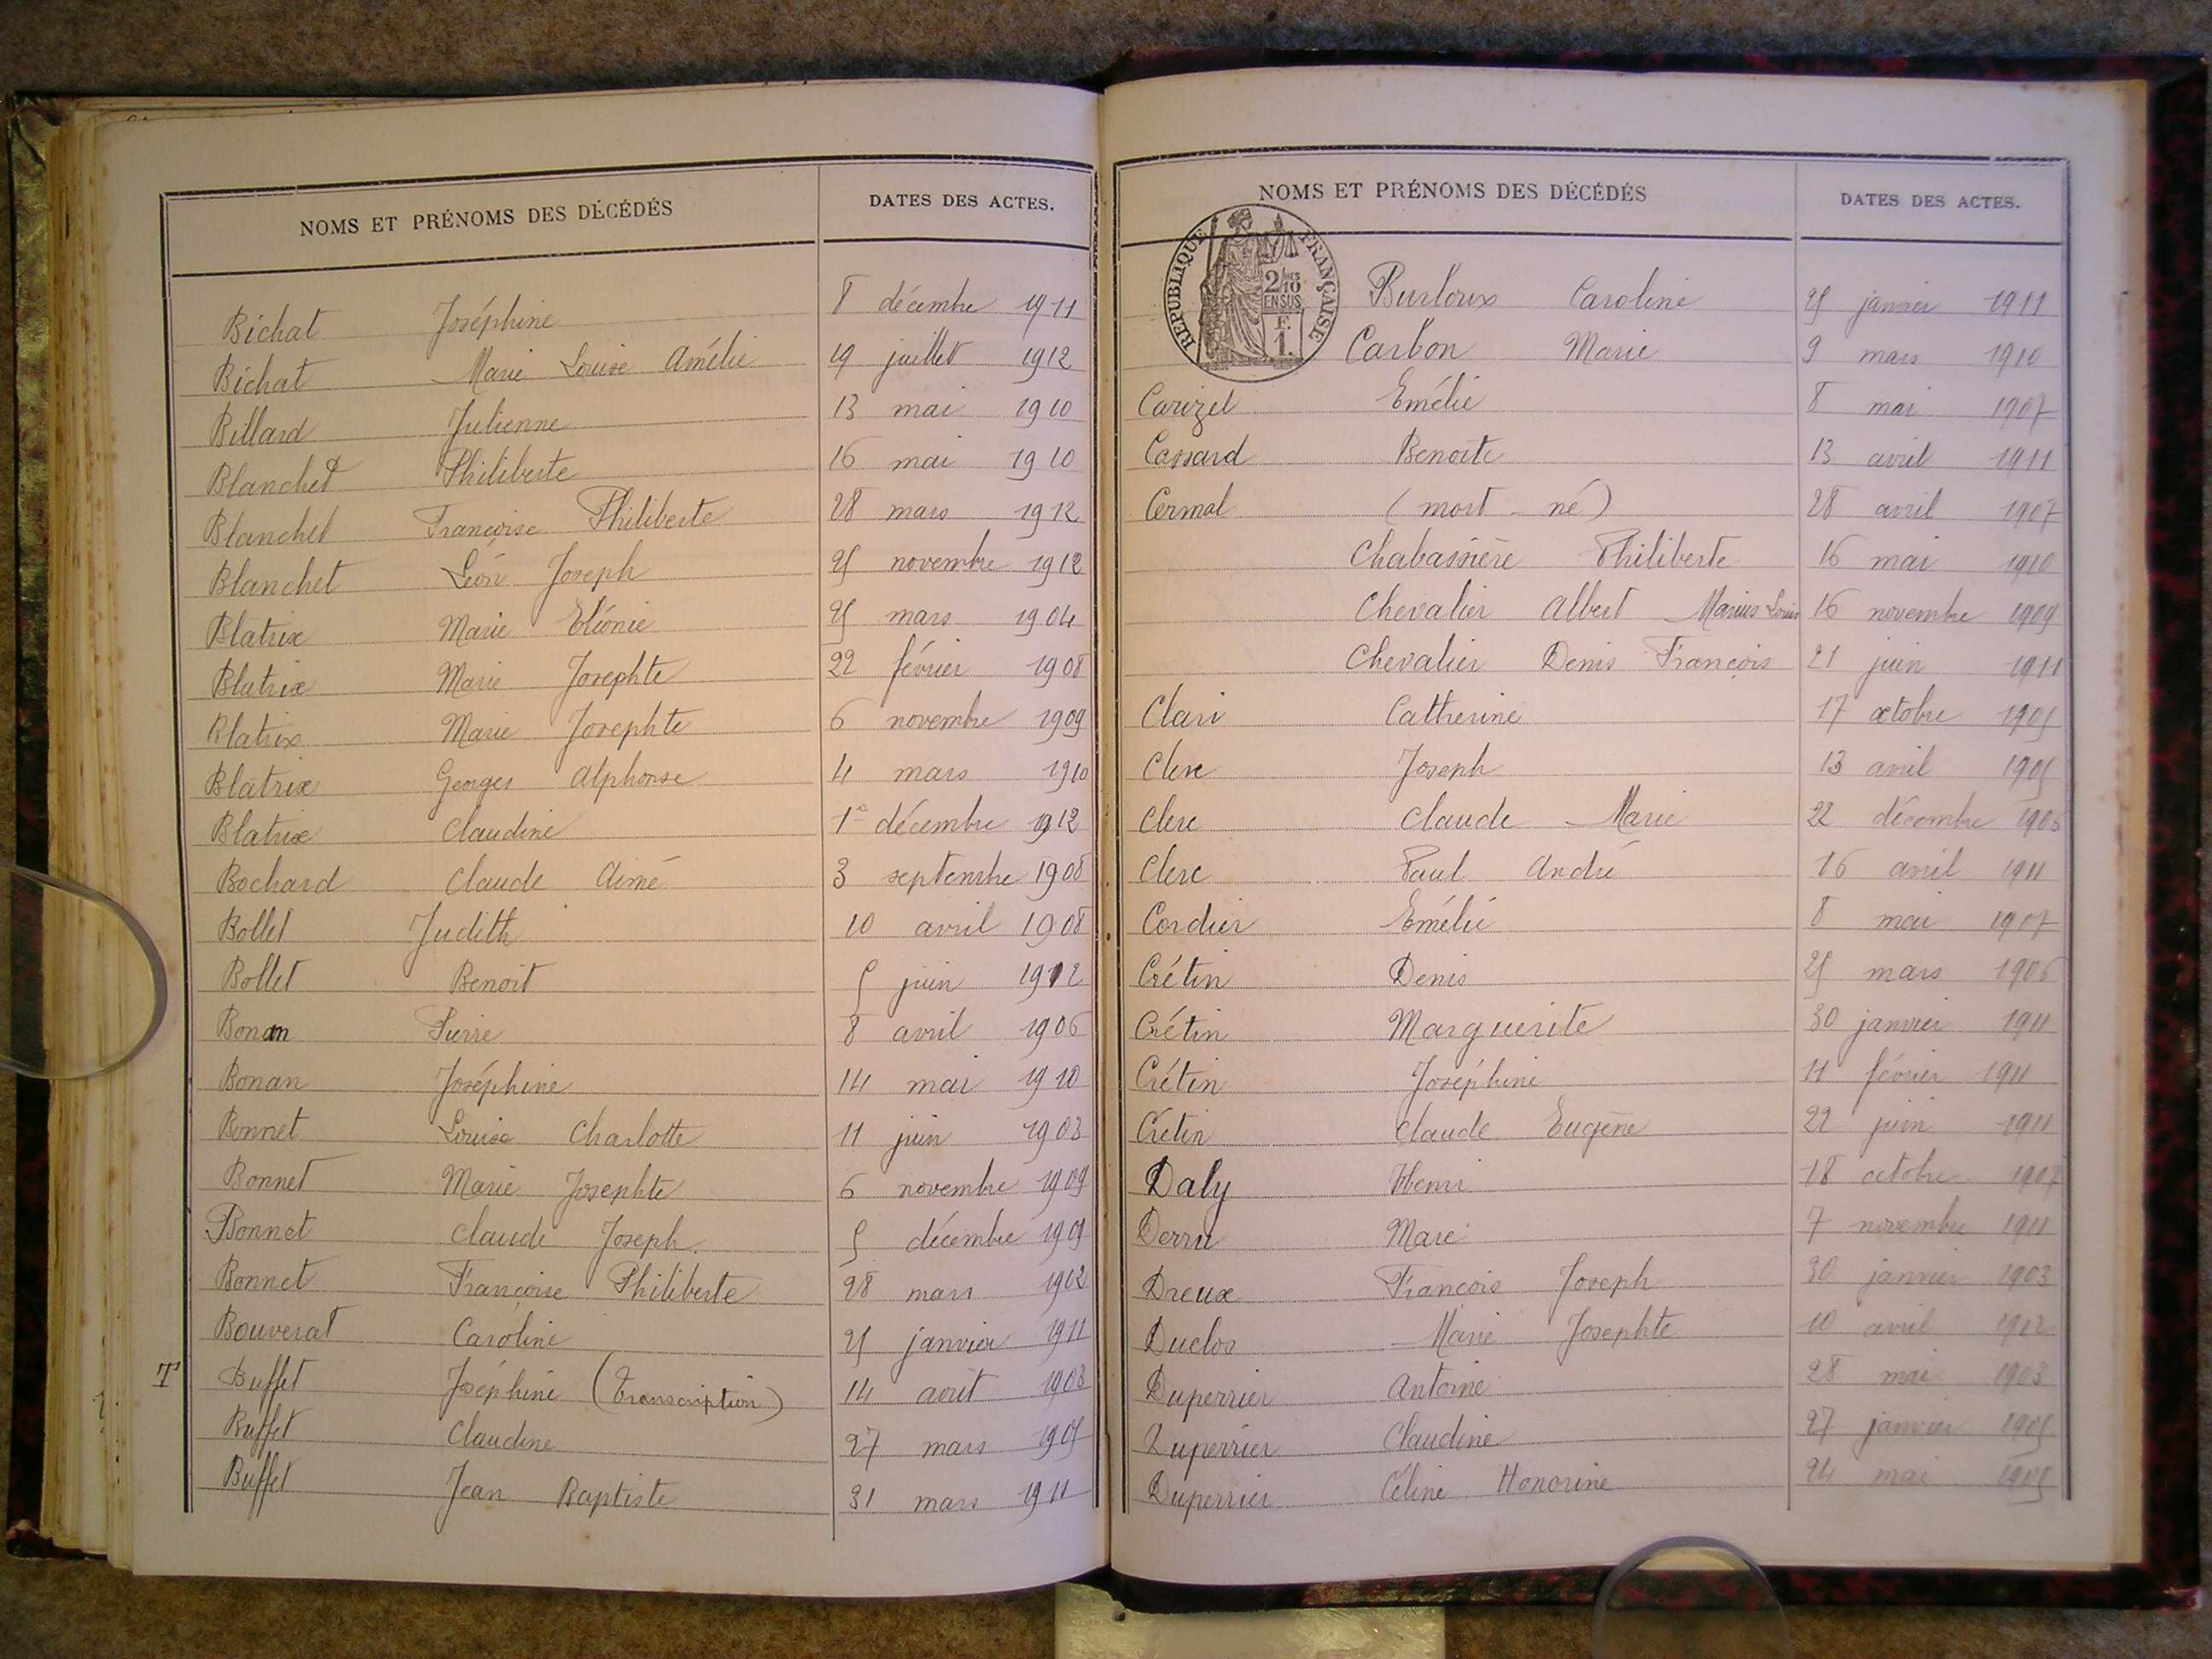 NOMS ET PRÉNOMS DES DÉCÉDÉS DATES DES ACTES.
Bichat Joséphine 8 décembre 1911
Bichat Marie Louise Amélie 19 juillet 1912
Billard Julienne 13 mai 1910
Blanchet Philiberte 16 mai 1910
Blanchet Françoise Philiberte 28 mars 1912
Blanchet Léon Joseph 25 novembre 1912
Blatrix Marie Eléonie 25 mars 1904
Blatrix Marie Josephte 22 février 1908
Blatrix Marie Josephte 6 novembre 1909
Blatrix Georges Alphonse 4 mars 1910
Blatrix Claudine 1er décembre 1912
Bochard Claude Aimé 3 septembre 1908
Bollet Judith 10 avril 1908
Bollet Benoit 5 juin 1912
Bonan Pierre 8 avril 1906
Bonan Joséphine 14 mai 1910
Bonnet Louise Charlotte 11 juin 1903
Bonnet Marie Josephte 6 novembre 1909
Bonnet Claude Joseph 5 décembre 1909
Bonnet Françoise Philiberte 28 mars 1912
Bouverat Caroline 25 janvier 1911
T Buffet Joséphine (Transcription) 14 août 1903
Buffet Claudine 27 mars 1905
Buffet Jean Baptiste 31 mars 1911
NOMS ET PRÉNOMS DES DÉCÉDÉS DATES DES ACTES.
REPUBLIQUE FRANÇAISE
2/10 mes
EN SUS
F.
1.
Burloux Caroline 25 janvier 1911
Carbon Marie 9 mars 1910
Carizel Emélie 8 mai 1907
Cassard Benoîte 13 avril 1911
Cermal (mort-né) 28 avril 1907
Chabassière Philiberte 16 mai 1910
Chevalier Albert Marius Louis 16 novembre 1909
Chevalier Denis François 21 juin 1911
Clari Catherine 17 octobre 1905
Clerc Joseph 13 avril 1905
Clerc Claude Marie 22 décembre 1906
Clerc Paul André 16 avril 1911
Cordier Emélie 8 mai 1907
Crétin Denis 25 mars 1906
Crétin Marguerite 30 janvier 1911
Crétin Joséphine 11 février 1911
Crétin Claude Eugène 22 juin 1911
Daly Henri 18 octobre 1907
Derru Marc 7 novembre 1911
Dreux François Joseph 30 janvier 1903
Duclos Marie Josephte 10 avril 1912
Duperrier Antoine 28 mai 1903
Duperrier Claudine 27 janvier 1905
Duperrier Céline Honorine 24 mai 1905